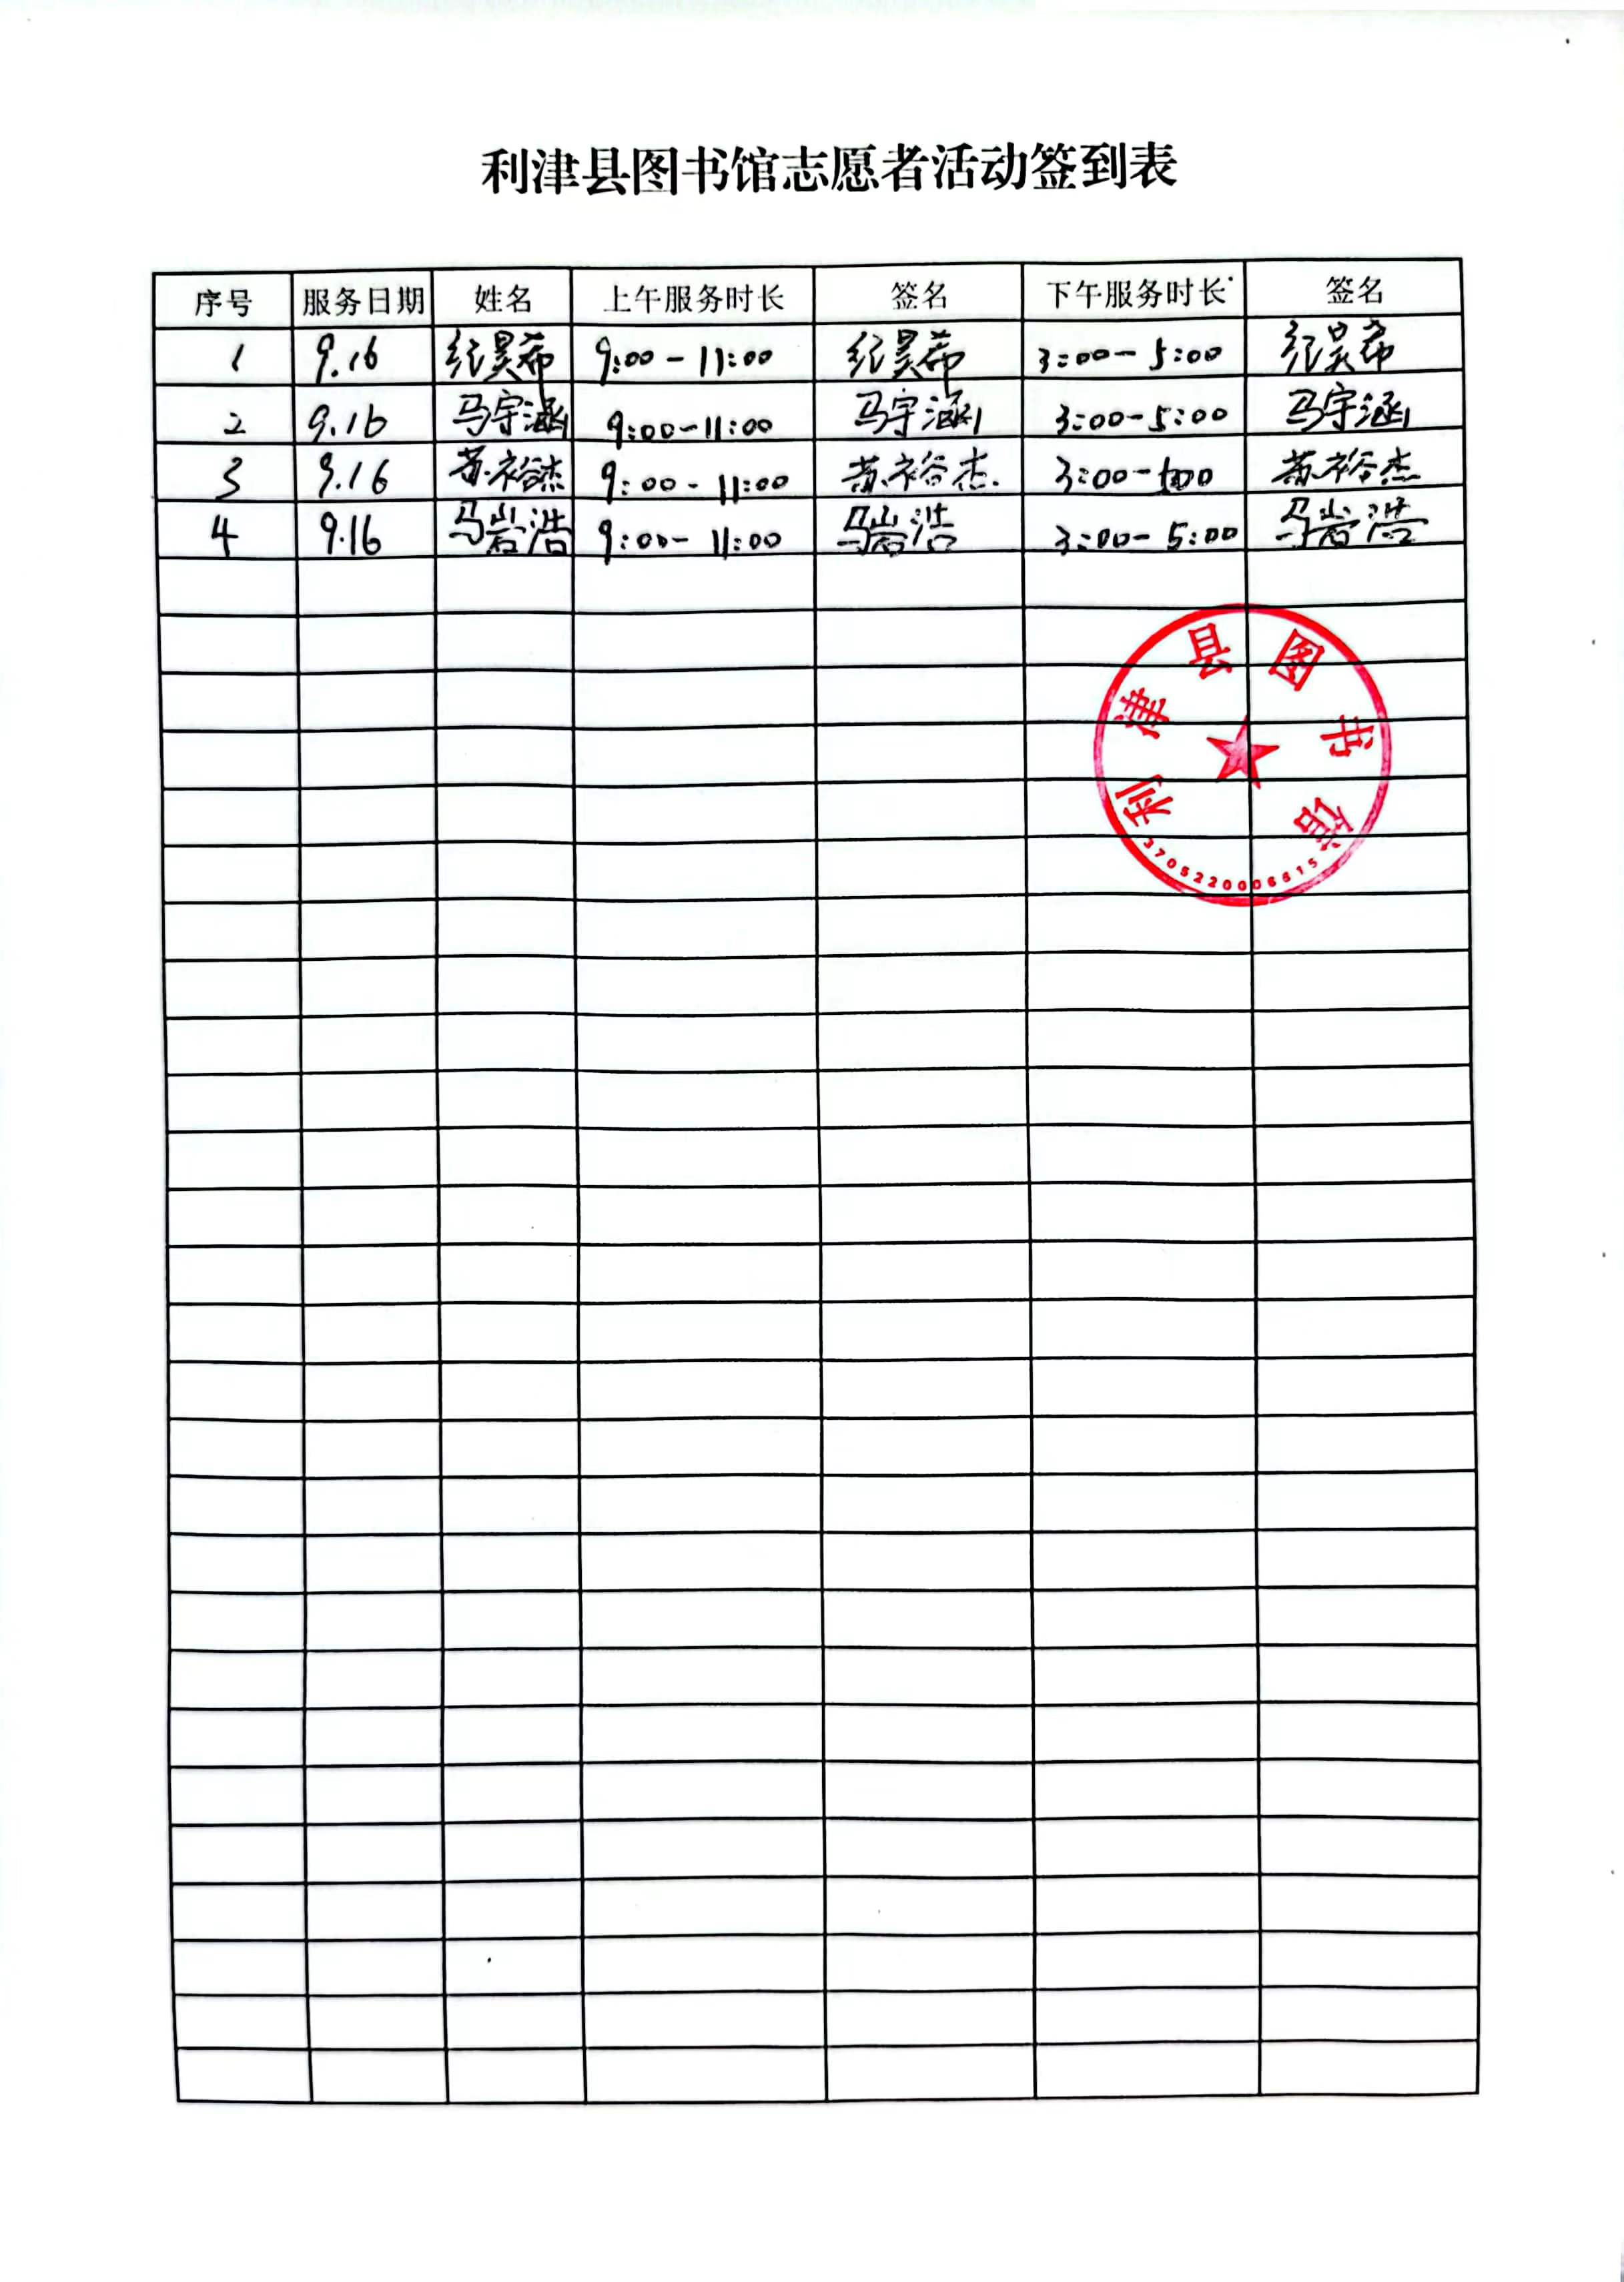 利津县图书馆志愿者活动签到表
序号 服务日期 姓名 上午服务时长 签名 下午服务时长 签名
1 9.16 纪昊希 9:00-11:00 纪昊希 3:00-5:00 纪昊希
2 9.16 马宇涵 9:00-11:00 马宇涵 3:00-5:00 马宇涵
3 9.16 苏裕杰 9:00-11:00 苏裕杰 3:00- 苏裕杰
4 9.16 马岩浩 9:00-11:00 马岩浩 3:00-5:00 马岩浩
利津县图书馆